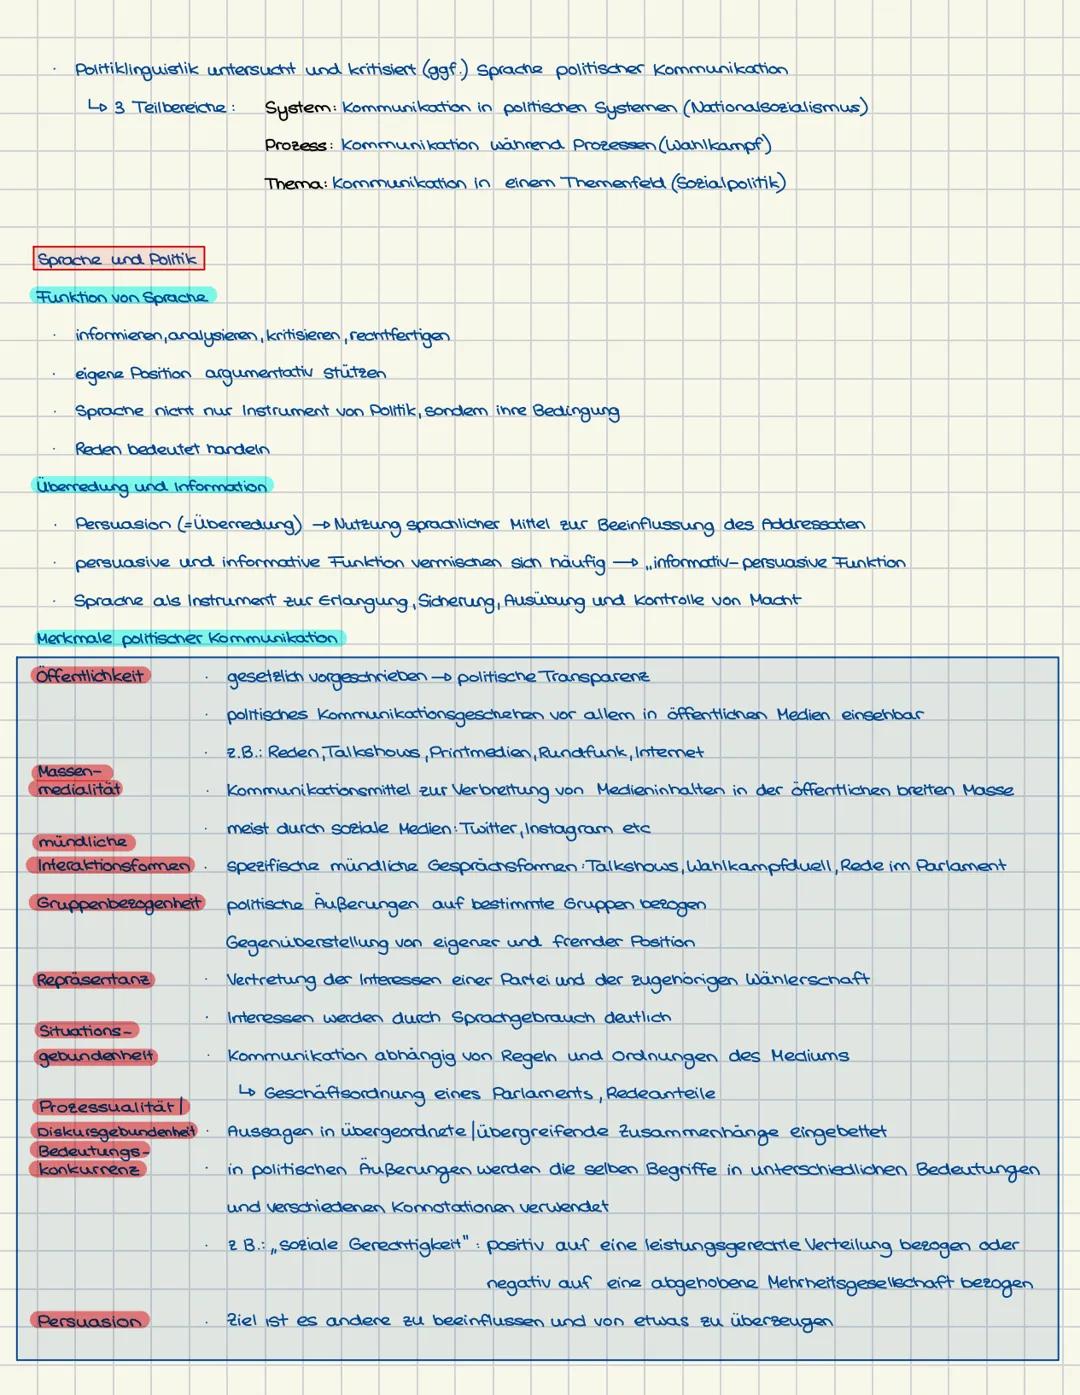 · Politiklinguistik untersucht und kritisiert (ggf.) Sprache politischer Kommunikation
↳ 3 Teilbereiche: System: Kommunikation in politischen Systemen (Nationalsozialismus)
Prozess: Kommunikation während Prozessen (Wahlkampf)
Thema: Kommunikation in einem Themenfeld (Sozialpolitik)
Sprache und Politik
Funktion von Sprache
· informieren, analysieren, kritisieren, rechtfertigen
· eigene Position argumentativ stützen
· Sprache nicht nur Instrument von Politik, sondern ihre Bedingung
· Reden bedeutet handeln
Überredung und Information
· Persuasion (=Überredung) → Nutzung sprachlicher Mittel zur Beeinflussung des Addressaten
· persuasive und informative Funktion vermischen sich häufig → „informativ-persuasive Funktion
· Sprache als Instrument zur Erlangung, Sicherung, Ausübung und Kontrolle von Macht
Merkmale politischer Kommunikation
Öffentlichkeit · gesetzlich vorgeschrieben → politische Transparenz
· politisches Kommunikationsgeschehen vor allem in öffentlichen Medien einsehbar
· z.B.: Reden, Talkshows, Printmedien, Rundfunk, Internet
Massen-
medialität · Kommunikationsmittel zur Verbreitung von Medieninhalten in der öffentlichen breiten Masse
· meist durch soziale Medien: Twitter, Instagram etc
mündliche
Interaktionsformen · spezifische mündliche Gesprächsformen: Talkshows, Wahlkampfduell, Rede im Parlament
Gruppenbezogenheit politische Äußerungen auf bestimmte Gruppen bezogen
Gegenüberstellung von eigener und fremder Position
Repräsentanz · Vertretung der Interessen einer Partei und der zugehörigen Wählerschaft
· Interessen werden durch Sprachgebrauch deutlich
Situations-
gebundenheit · Kommunikation abhängig von Regeln und Ordnungen des Mediums
↳ Geschäftsordnung eines Parlaments, Redeanteile
Prozessualität/
Diskursgebundenheit · Aussagen in übergeordnete/übergreifende Zusammenhänge eingebettet
Bedeutungs-
konkurrenz · in politischen Äußerungen werden die selben Begriffe in unterschiedlichen Bedeutungen
und verschiedenen Konnotationen verwendet
· z B.: „soziale Gerechtigkeit": positiv auf eine leistungsgerechte Verteilung bezogen oder
negativ auf eine abgehobene Mehrheitsgesellschaft bezogen
Persuasion · Ziel ist es andere zu beeinflussen und von etwas zu überzeugen